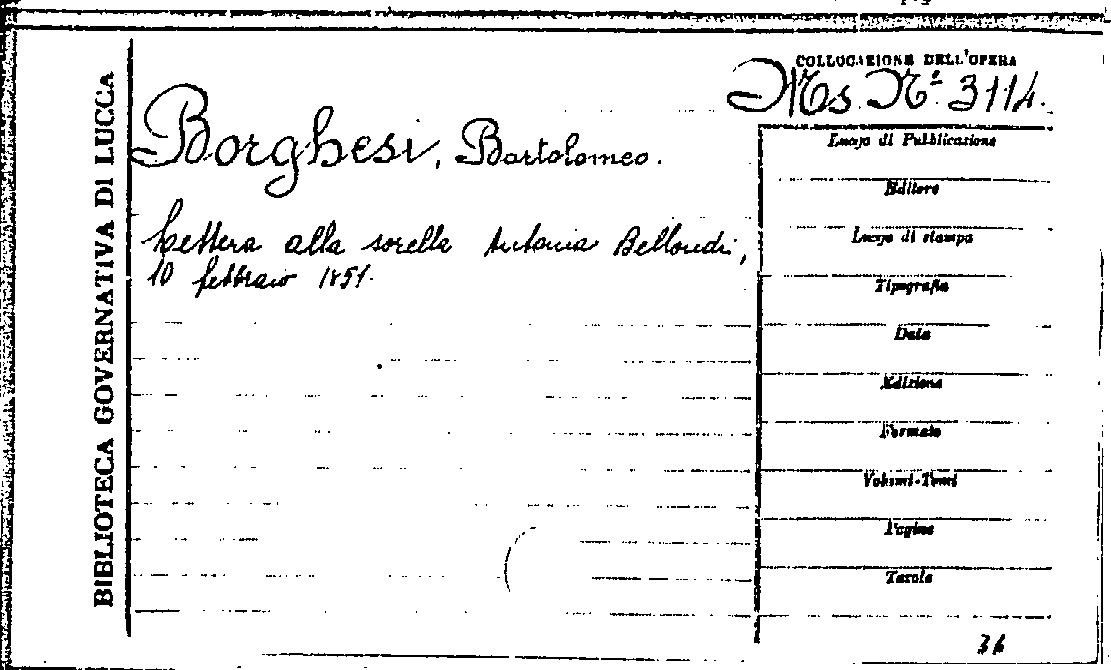 BIBLIOTECA GOVERNATIVA DI LUCCA
COLLOCAZIONE DELL'OPERA
Ms. N.º 3114.
Borghesi, Bartolomeo.
Lettera alla sorella Antonia Bellondi,
10 febbraio 1851.
Luogo di Pubblicazione
Editore
Luogo di stampa
Tipografia
Data
Edizione
Formato
Volumi-Tomi
Pagine
Tavole
36